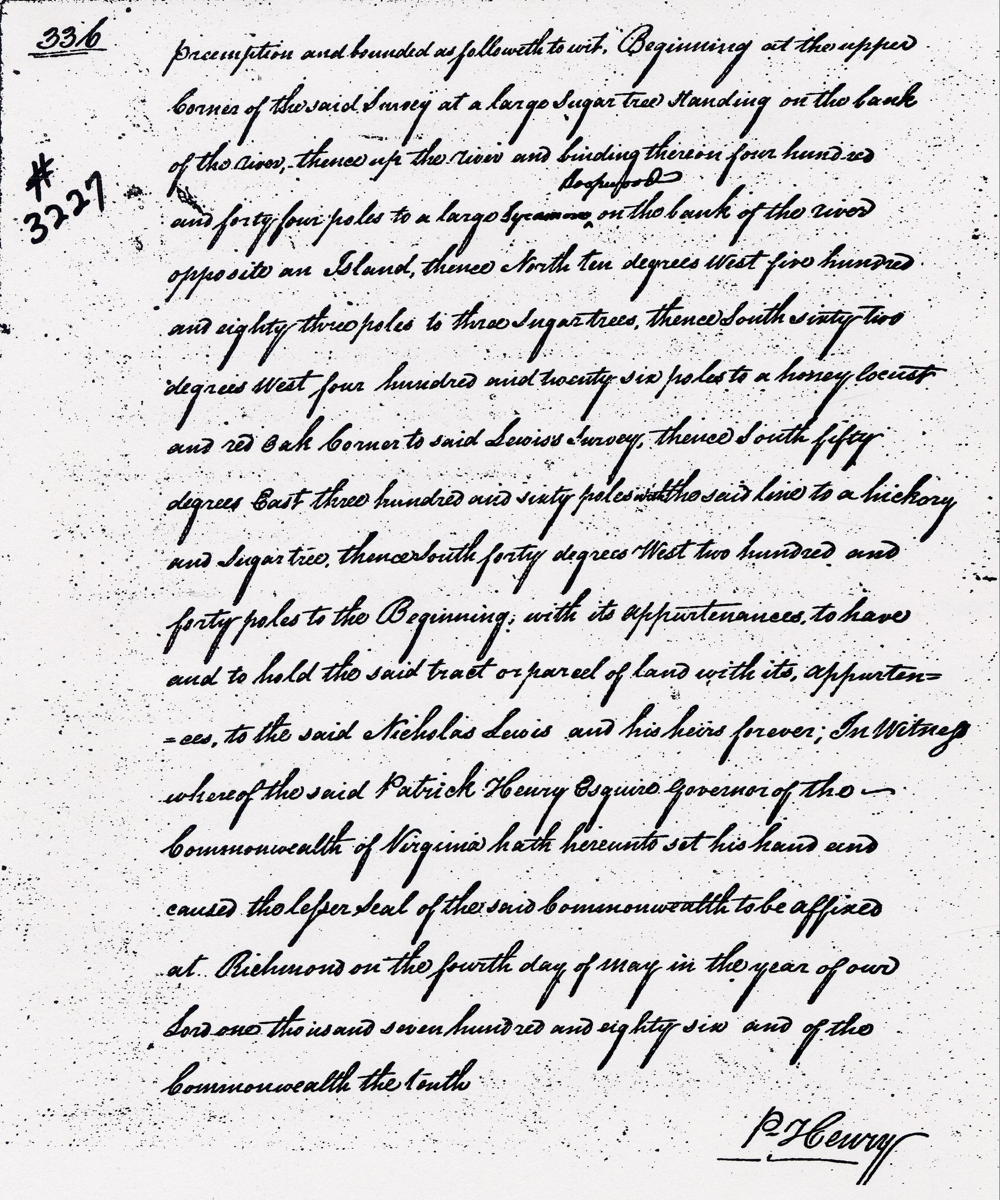 336
preemption and bounded as followeth to wit. Beginning at the upper
Corner of the said Survey at a large Sugar tree standing on the bank
of the river, thence up the river and binding thereon four hundred
# 3227
and forty four poles to a large Sycamore on the bank of the river
opposite an Island, thence North ten degrees West five hundred
and eighty three poles to three Sugar trees, thence South sixty two
degrees West four hundred and twenty six poles to a honey locust
and red Oak Corner to said Lewis's Survey, thence South fifty
degrees East three hundred and sixty poles with the said line to a hickory
and Sugar tree, thence South forty degrees West two hundred and
forty poles to the Beginning; with its appurtenances, to have
and to hold the said tract or parcel of land with its, appurten=
=ces, to the said Nicholas Lewis and his heirs forever; In Witness
whereof the said Patrick Henry Esquire Governor of the
Commonwealth of Virginia hath hereunto set his hand and
caused the lesser Seal of the said Commonwealth to be affixed
at Richmond on the fourth day of May in the year of our
Lord one thousand seven hundred and eighty six and of the
Commonwealth the tenth
P. Henry